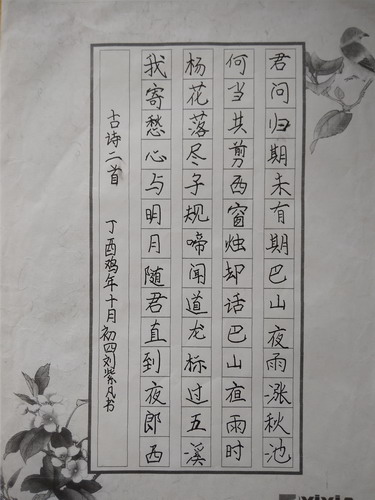 君问归期未有期巴山夜雨涨秋池
何当共剪西窗烛却话巴山夜雨时
杨花落尽子规啼闻道龙标过五溪
我寄愁心与明月随君直到夜郎西
古诗二首 丁酉鸡年十月初四刘紫凡书